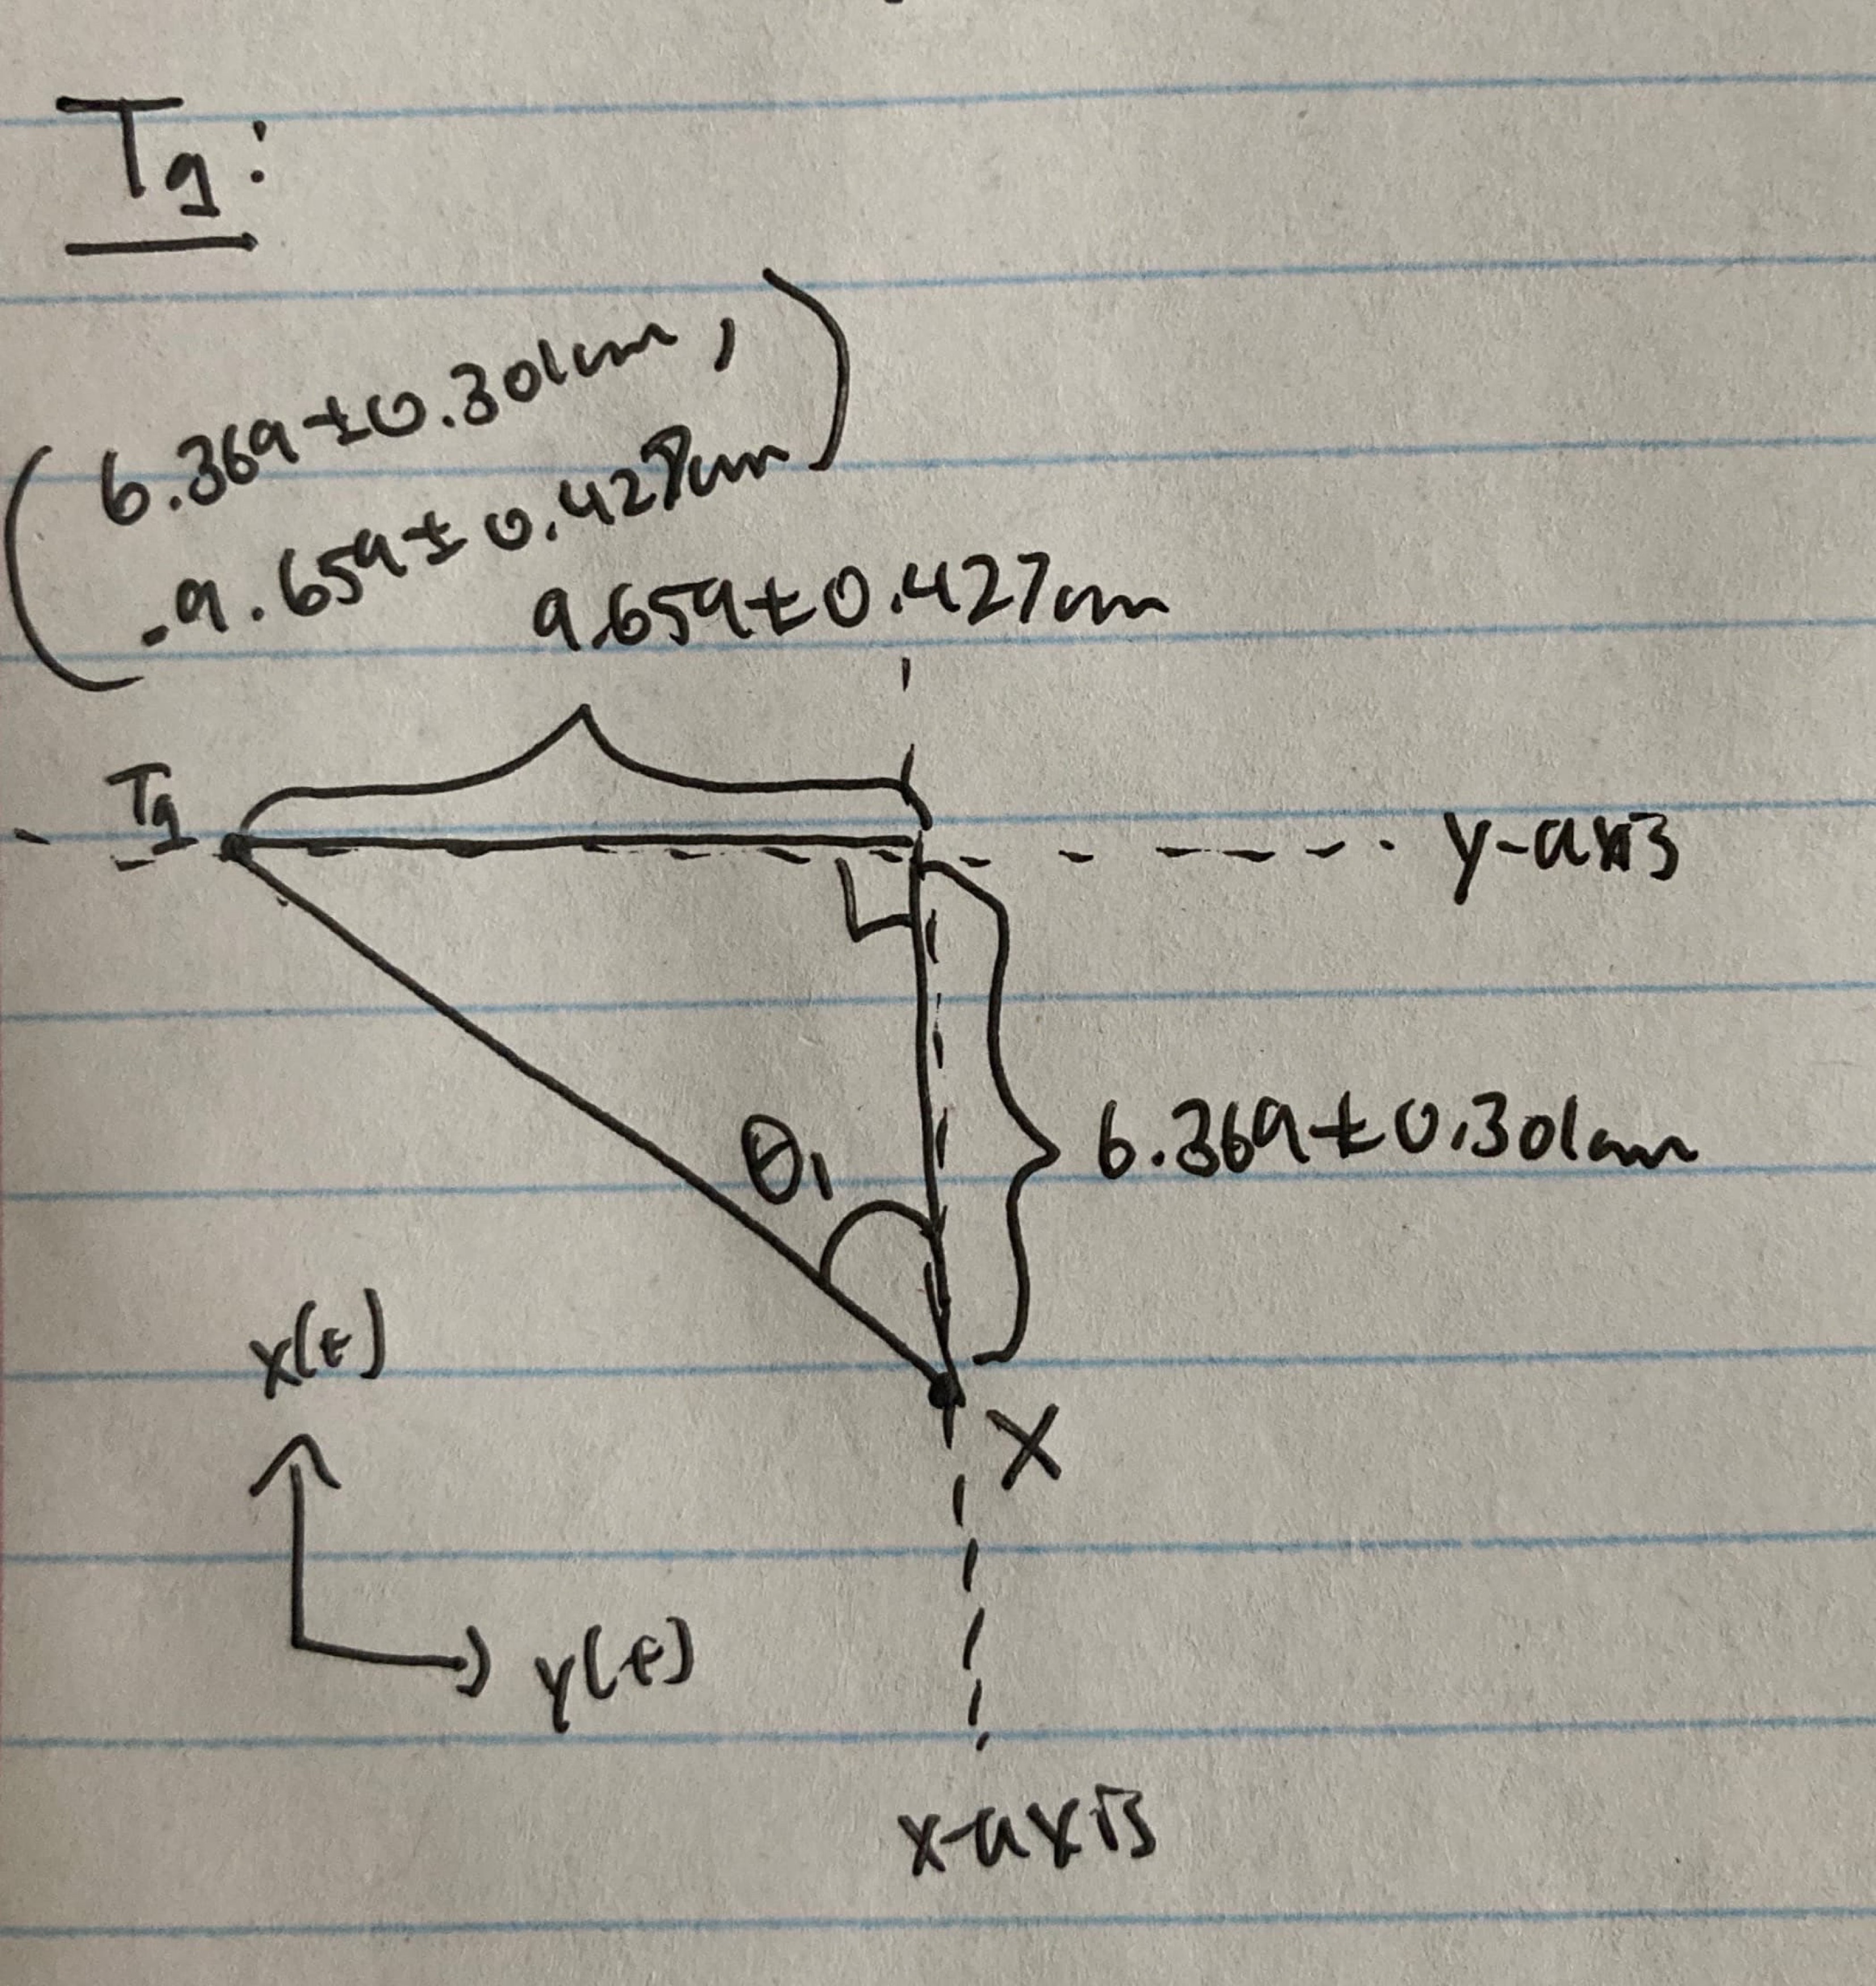 Tg:
(6.369±0.301cm,
-9.659±0.427cm)
9.659±0.427cm
Tg
y-axis
θ₁
6.369±0.301cm
x(t)
X
y(t)
x-axis